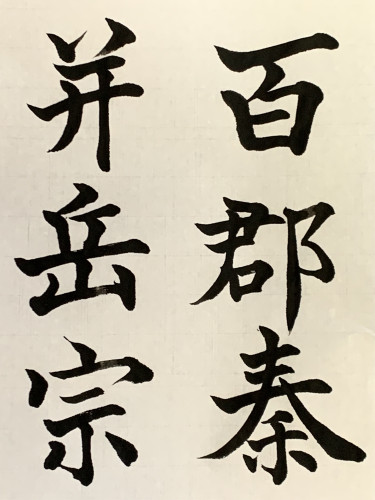 百郡秦
并岳宗